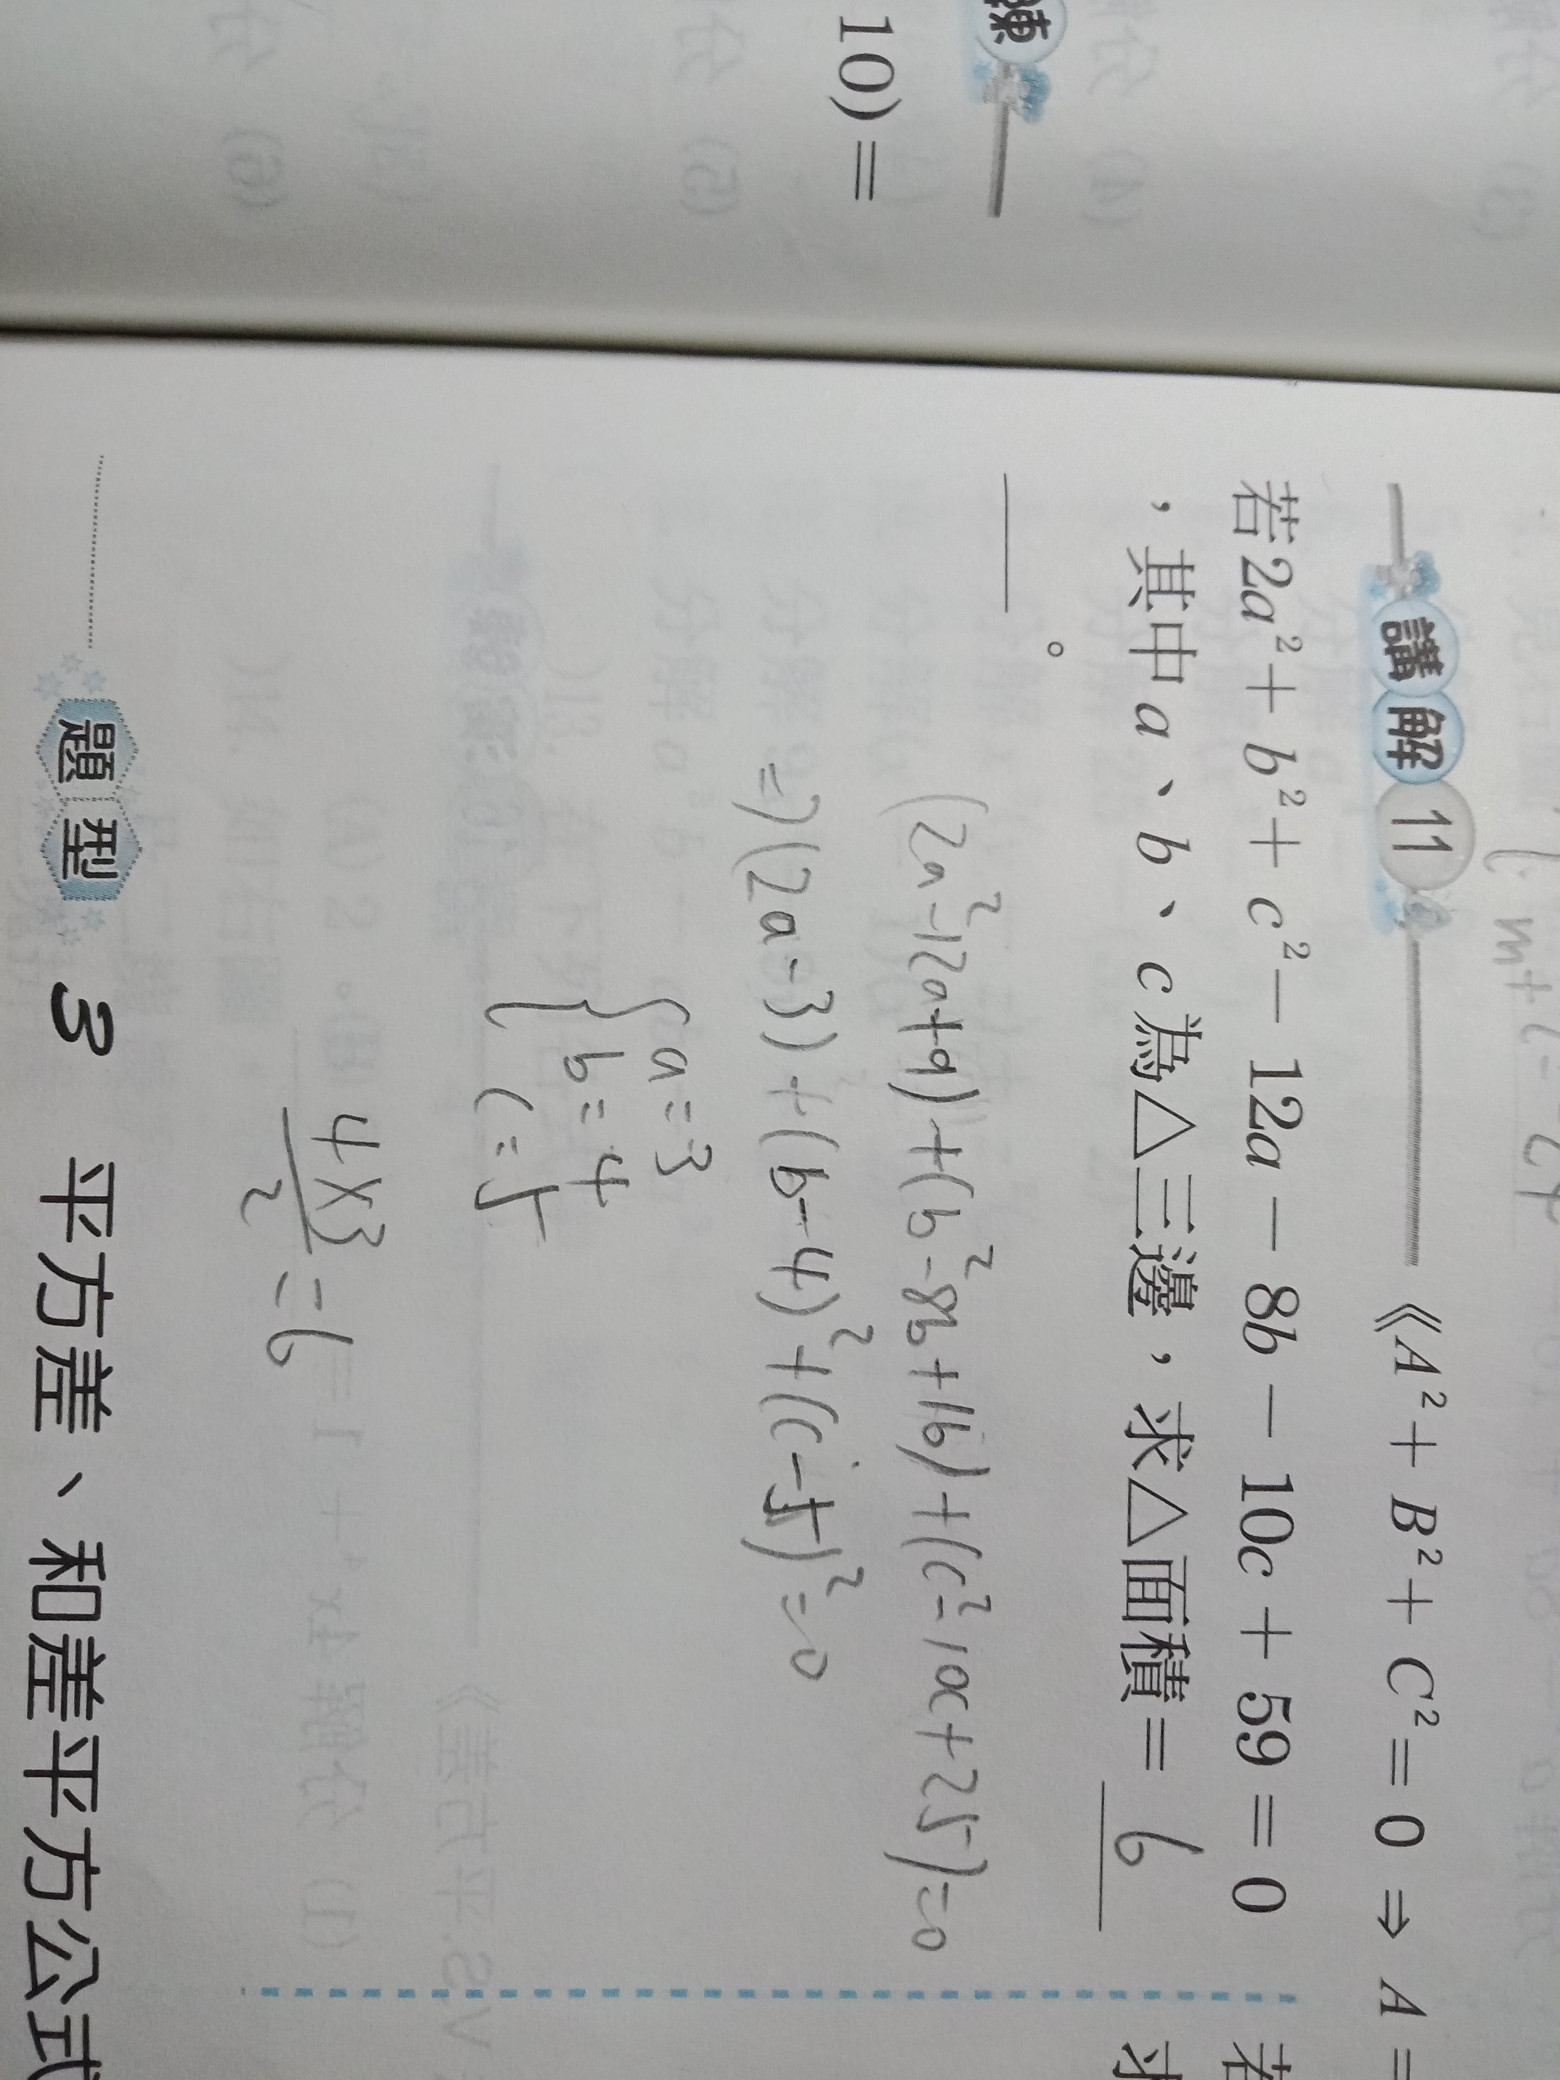 練
10) =
講解 11 《A²+B²+C²=0 ⇒ A =
若2a²+b²+c²−12a−8b−10c+59=0
，其中a、b、c為△三邊，求△面積= 6
。
(2a²-12a+9)+(b²-8b+16)+(c²-10c+25)=0
=>(2a-3)+(b-4)²+(c-5)²=0
{a=3
b=4
c=5
4×3/2=6
題型 3 平方差、和差平方公式
若
求